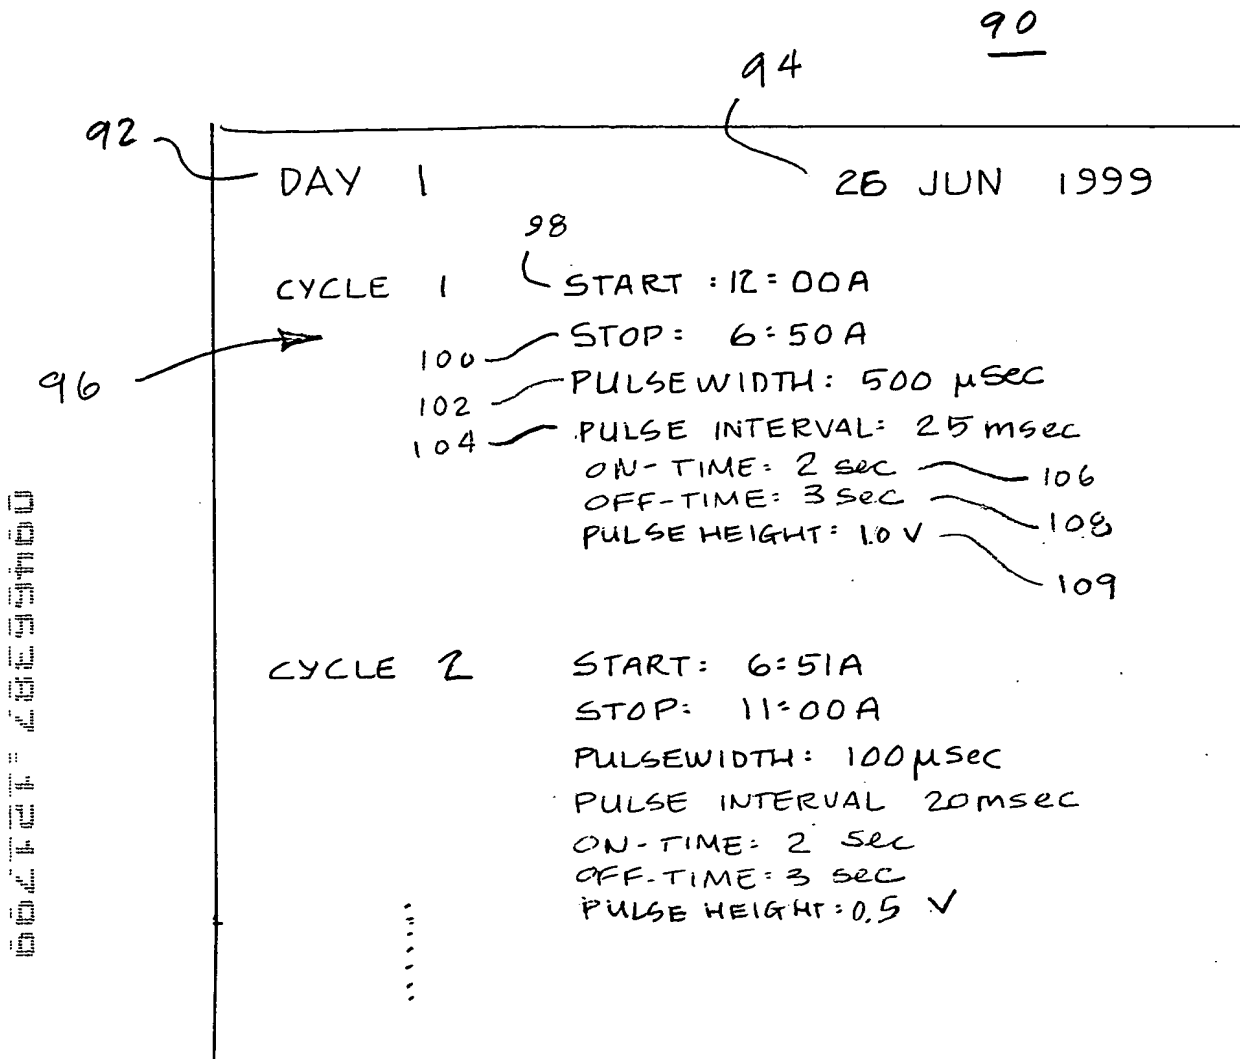 90
94
92
DAY 1 26 JUN 1999
98
CYCLE 1 START : 12:00A
100 STOP: 6:50A
96
102 PULSEWIDTH: 500 μsec
104 PULSE INTERVAL: 25 msec
ON-TIME: 2 sec 106
OFF-TIME: 3 sec 108
PULSE HEIGHT: 1.0 V
109
CYCLE 2 START: 6:51A
STOP: 11:00A
PULSEWIDTH: 100 μsec
PULSE INTERVAL 20 msec
ON-TIME: 2 sec
OFF-TIME: 3 sec
PULSE HEIGHT: 0.5 V
09466387 .121799